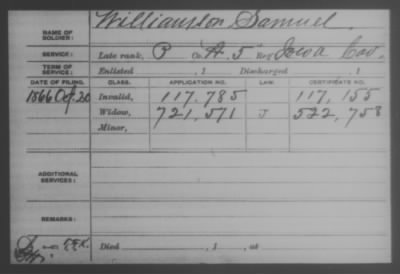 NAME OF SOLDIER: Williamson Samuel.
SERVICE: Late rank, P Co. A. 5 Reg't Iowa Cav.
TERM OF SERVICE: Enlisted , 1 Discharged , 1
DATE OF FILING. CLASS. APPLICATION NO. LAW. CERTIFICATE NO.
1866 Oct. 20 Invalid, 117,785 117,155
Widow, 721,571 J 522,758
Minor,
ADDITIONAL SERVICES:
REMARKS:
Died , 1 , at